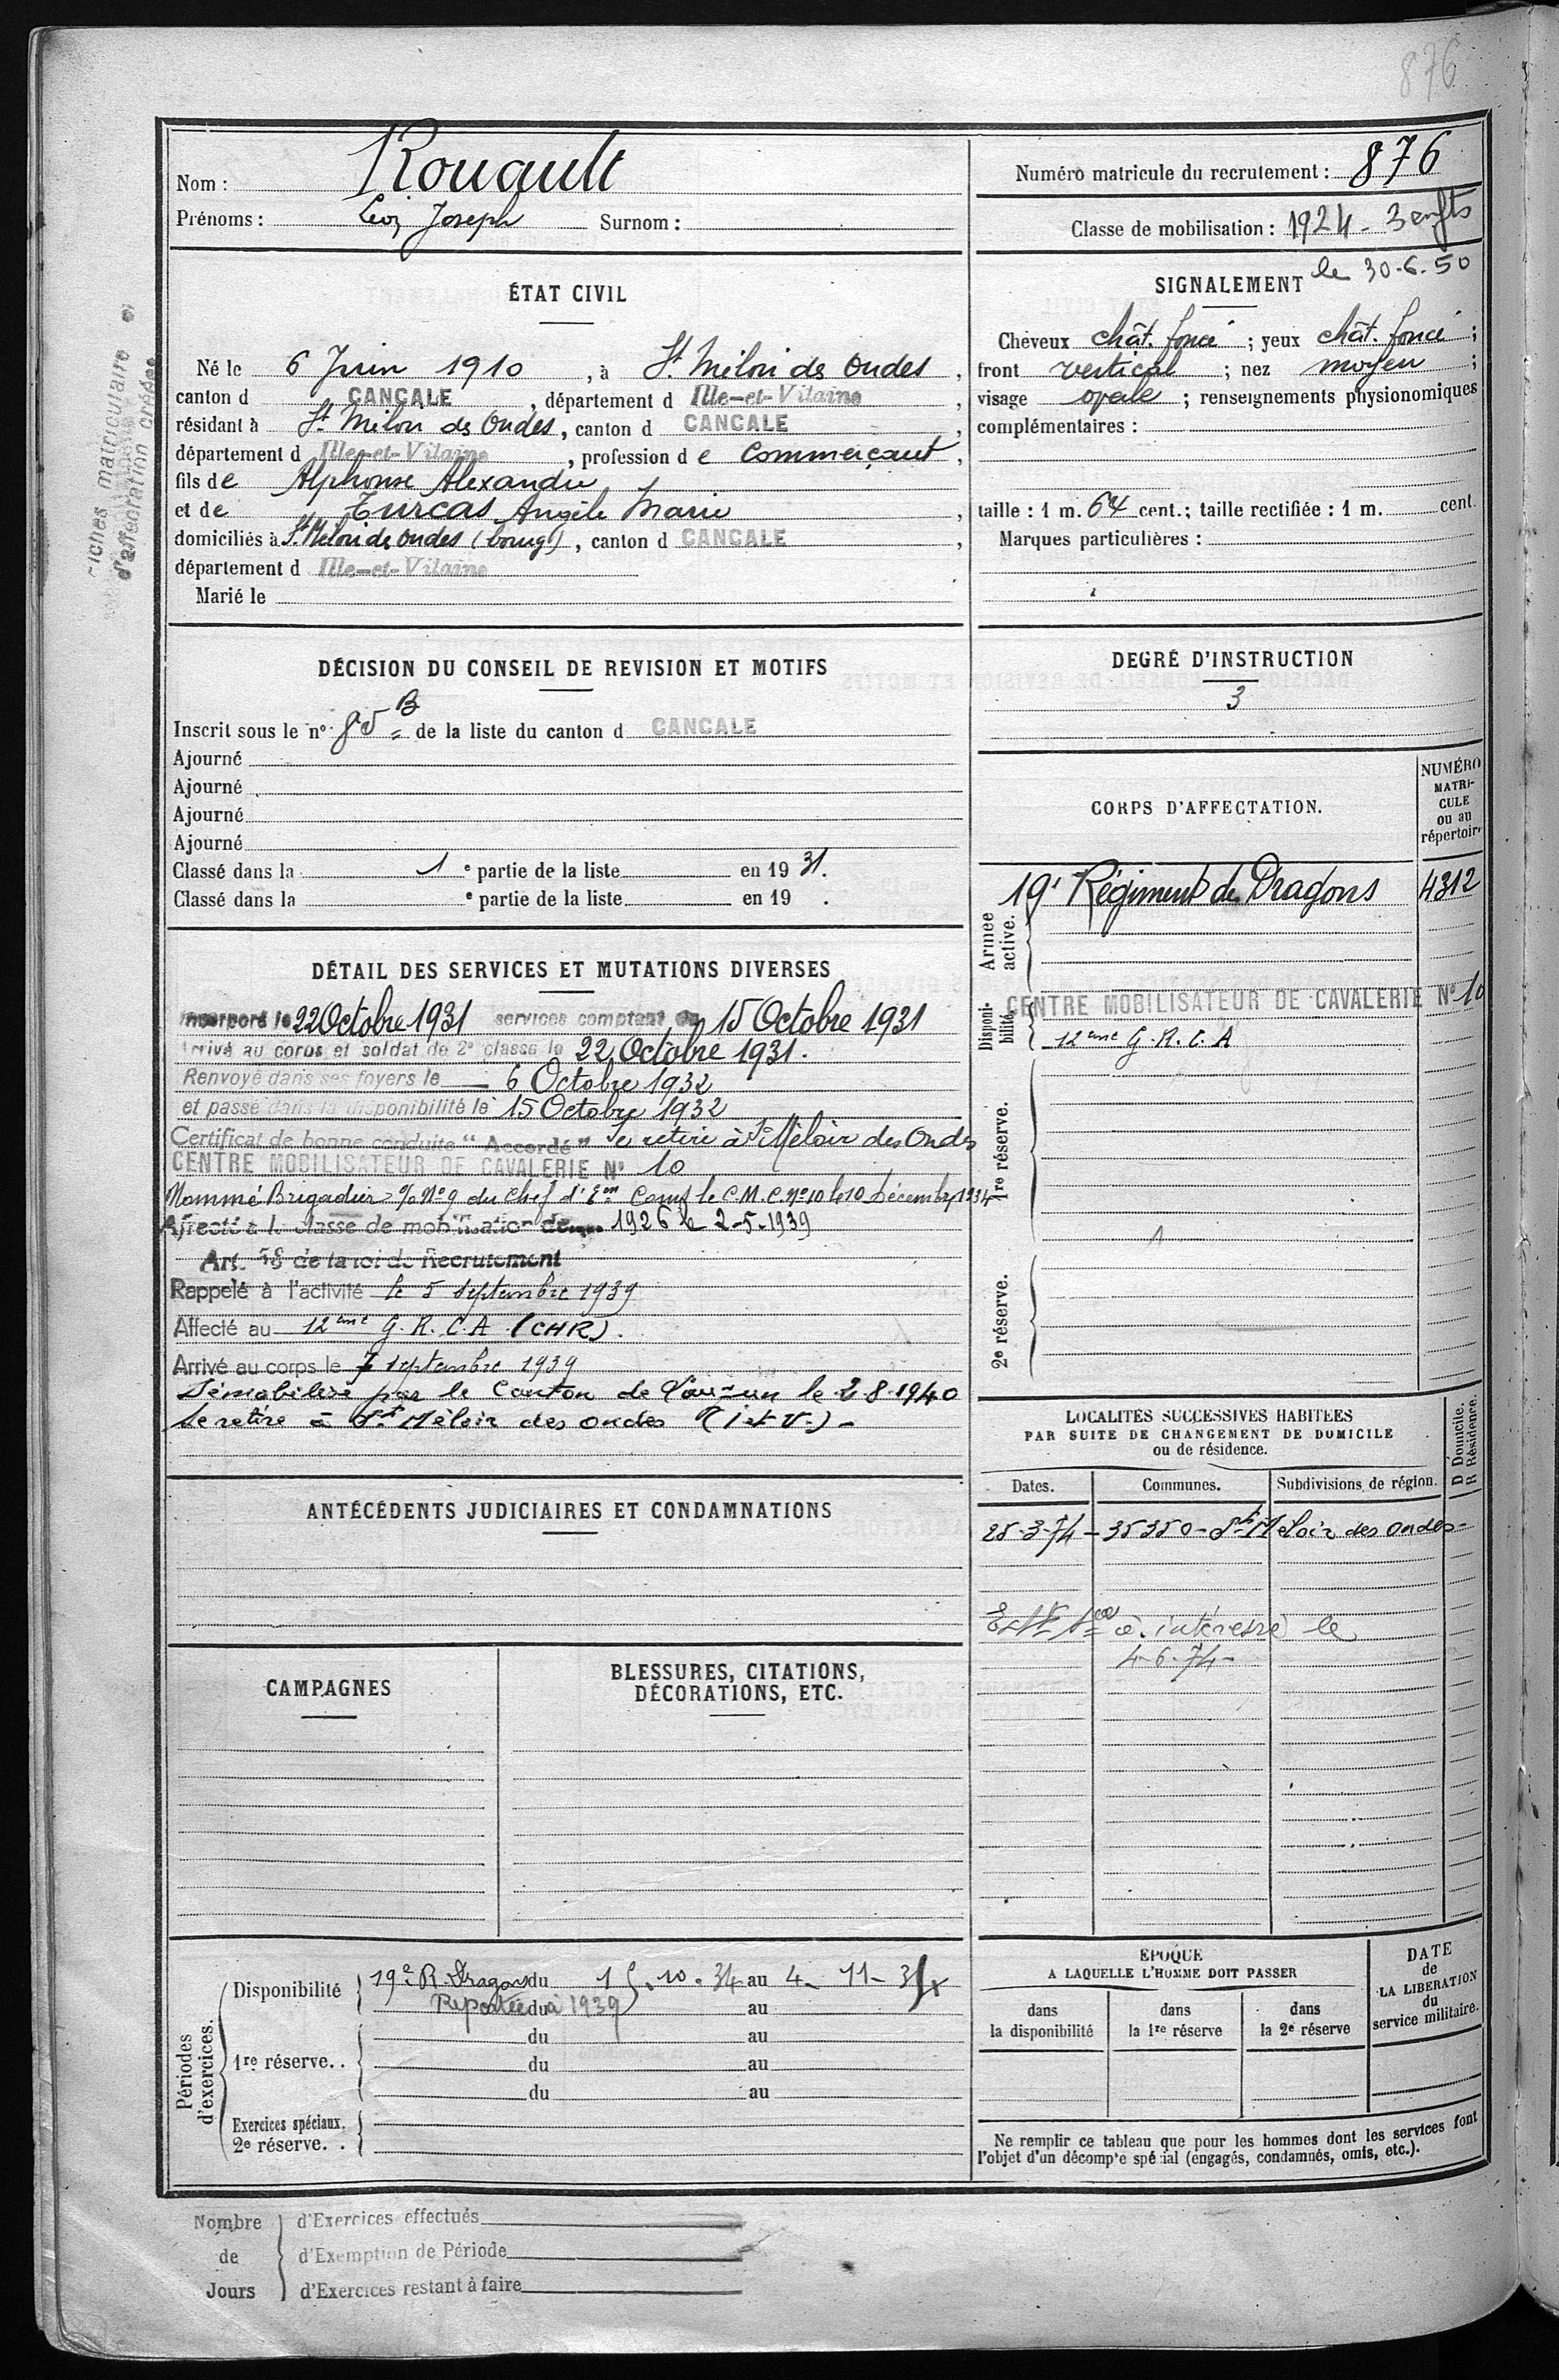 876
Nom : Rouault
Prénoms : Joseph Surnom :
Numéro matricule du recrutement : 876
Classe de mobilisation : 1924 - 3 enfts
le 30-6-50
Fiches matriculaire et
d'affectation créées
ÉTAT CIVIL
Né le 6 Juin 1910, à St Méloir des Ondes,
canton d CANCALE, département d Ille-et-Vilaine,
résidant à St Méloir des Ondes, canton d CANCALE,
département d Ille-et-Vilaine, profession de Commerçant,
fils de Alphonse Alexandre
et de Turcas Angèle Marie,
domiciliés à St Méloir des Ondes (bourg), canton d CANCALE,
département d Ille-et-Vilaine
Marié le
SIGNALEMENT
Cheveux chât. foncé ; yeux chât. foncé ;
front vertical ; nez moyen ;
visage ovale ; renseignements physionomiques
complémentaires :
taille : 1 m. 64 cent. ; taille rectifiée : 1 m. cent.
Marques particulières :
DÉCISION DU CONSEIL DE REVISION ET MOTIFS
Inscrit sous le n° 80 B de la liste du canton d CANCALE
Ajourné
Ajourné
Ajourné
Ajourné
Classé dans la 1 e partie de la liste en 19 31.
Classé dans la e partie de la liste en 19 .
DEGRÉ D'INSTRUCTION
3
CORPS D'AFFECTATION.
NUMÉRO
MATRI-
CULE
ou au
répertoire
Armée
active.
19e Régiment de Dragons 4312
Disponi-
bilité.
CENTRE MOBILISATEUR DE CAVALERIE N° 10
12eme G.R.C.A
1re réserve.
1
2e réserve.
DÉTAIL DES SERVICES ET MUTATIONS DIVERSES
Incorporé le 22 Octobre 1931 services comptant du 15 Octobre 1931
Arrivé au corps et soldat de 2e classe le 22 Octobre 1931.
Renvoyé dans ses foyers le 6 Octobre 1932
et passé dans la disponibilité le 15 Octobre 1932
Certificat de bonne conduite "Accordé" Se retire à St Méloir des Ondes
CENTRE MOBILISATEUR DE CAVALERIE N° 10
Nommé Brigadier % N° 9 du Chef d'Eon Comt le C.M.C. n° 10 le 10 Décembre 1934
Affecté à la classe de mobilisation de 1926 le 2-5-1939
Art. 58 de la loi de Recrutement
Rappelé à l'activité le 5 septembre 1939
Affecté au 12eme G.R.C.A (CHR).
Arrivé au corps le 7 septembre 1939
Démobilisé par le Canton de Lauzun le 2-8-1940
Se retire à St Méloir des Ondes (I et V.) -
LOCALITÉS SUCCESSIVES HABITÉES
PAR SUITE DE CHANGEMENT DE DOMICILE
ou de résidence.
D Domicile.
R Résidence.
Dates. Communes. Subdivisions de région.
25-3-74 - 35350 - St Méloir des Ondes -
à intéressé le
4-6-74 -
ANTÉCÉDENTS JUDICIAIRES ET CONDAMNATIONS
CAMPAGNES
BLESSURES, CITATIONS,
DÉCORATIONS, ETC.
Périodes
d'exercices.
Disponibilité
19e R. Dragons du 15.10.34 au 4-11-34
Reportée du à 1939 au
1re réserve. .
du au
du au
du au
Exercices spéciaux.
2e réserve. .
ÉPOQUE
A LAQUELLE L'HOMME DOIT PASSER
dans
la disponibilité
dans
la 1re réserve
dans
la 2e réserve
DATE
de
LA LIBÉRATION
du
service militaire.
Ne remplir ce tableau que pour les hommes dont les services font
l'objet d'un décompte spécial (engagés, condamnés, omis, etc.).
Nombre
de
Jours
d'Exercices effectués
d'Exemption de Période
d'Exercices restant à faire